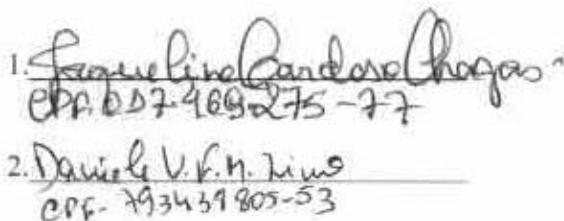 1. Jaqueline Cardoso Chagas
CPF. 057.469.275-77
2. Daniele V. F. M. Lima
CPF- 793439805-53